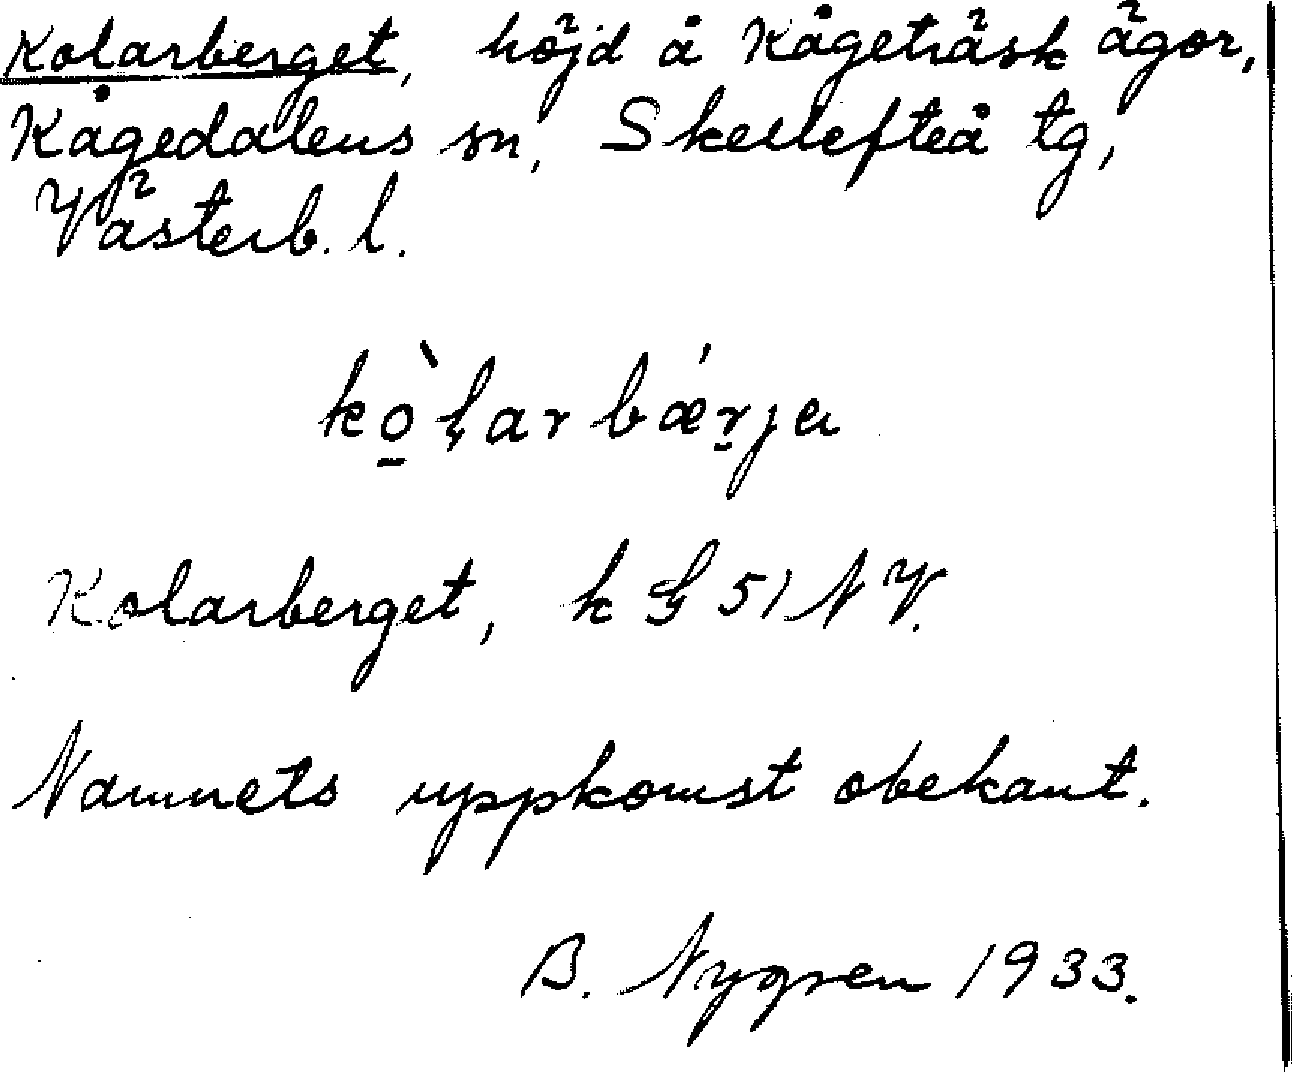 Kolarberget, höjd å Kågeträsk ägor,
Kågedalens sn, Skellefteå tg,
Västerb. l.
kò̠ļarbǽr̠ja
Kolarberget, k G 51 NV.
Namnets uppkomst obekant.
B. Nygren 1933.